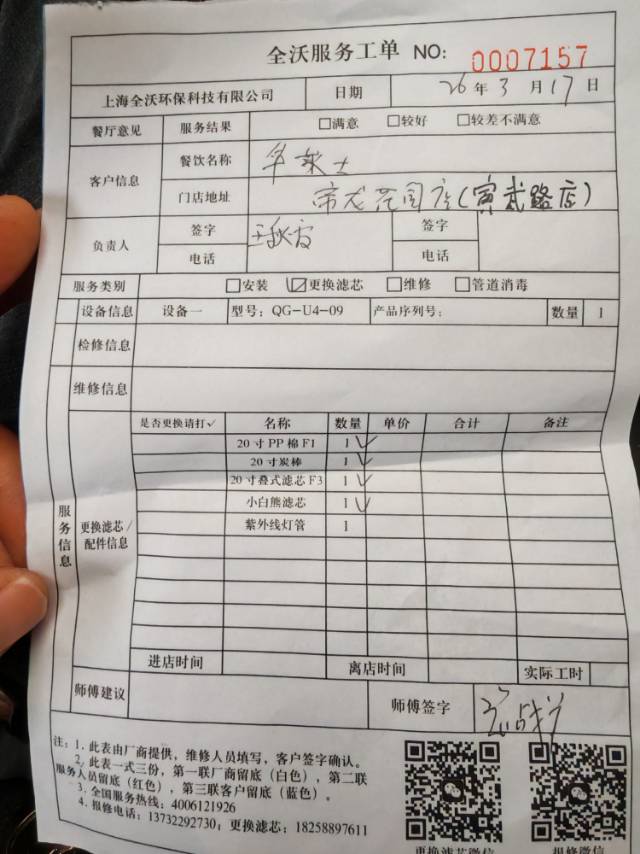 全沃服务工单 NO: 0007157
上海全沃环保科技有限公司 日期 26年3月17日
餐厅意见 服务结果 □满意 □较好 □较差不满意
客户信息 餐饮名称 华莱士
门店地址 帝龙花园店(寅武路店)
负责人 签字 签字
电话 电话
服务类别 □安装 ☑更换滤芯 □维修 □管道消毒
设备信息 设备一 型号: QG-U4-09 产品序列号: 数量 1
检修信息
维修信息
服务信息 更换滤芯/配件信息
是否更换请打✓ 名称 数量 单价 合计 备注
20寸PP棉F1 1 ✓
20寸炭棒 1 ✓
20寸叠式滤芯F3 1 ✓
小白熊滤芯 1 ✓
紫外线灯管 1
进店时间 离店时间 实际工时
师傅建议 师傅签字
注: 1. 此表由厂商提供, 维修人员填写, 客户签字确认。
2. 此表一式三份, 第一联厂商留底(白色), 第二联
服务人员留底(红色), 第三联客户留底(蓝色)。
3. 全国服务热线: 4006121926
4. 报修电话: 13732292730; 更换滤芯: 18258897611
更换滤芯微信 报修微信